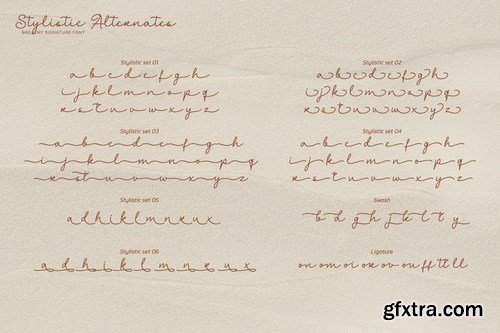 Stylistic Alternates
BREANY SIGNATURE FONT
Stylistic set 01
a b c d e f g h
i j k l m n o p q
r s t u v w x y z
Stylistic set 02
a b c d e f g h
i j k l m n o p q
r s t u v w x y z
Stylistic set 03
a b c d e f g h
i j k l m n o p q
r s t u v w x y z
Stylistic set 04
a b c d e f g h
i j k l m n o p q
r s t u v w x y z
Stylistic set 05
a d h i k l m n r u x
Swash
b d g h j k l t y
Stylistic set 06
a d h i k l m n r u x
Ligature
on om oi or ov ou ff tt ll
gfxtra.com